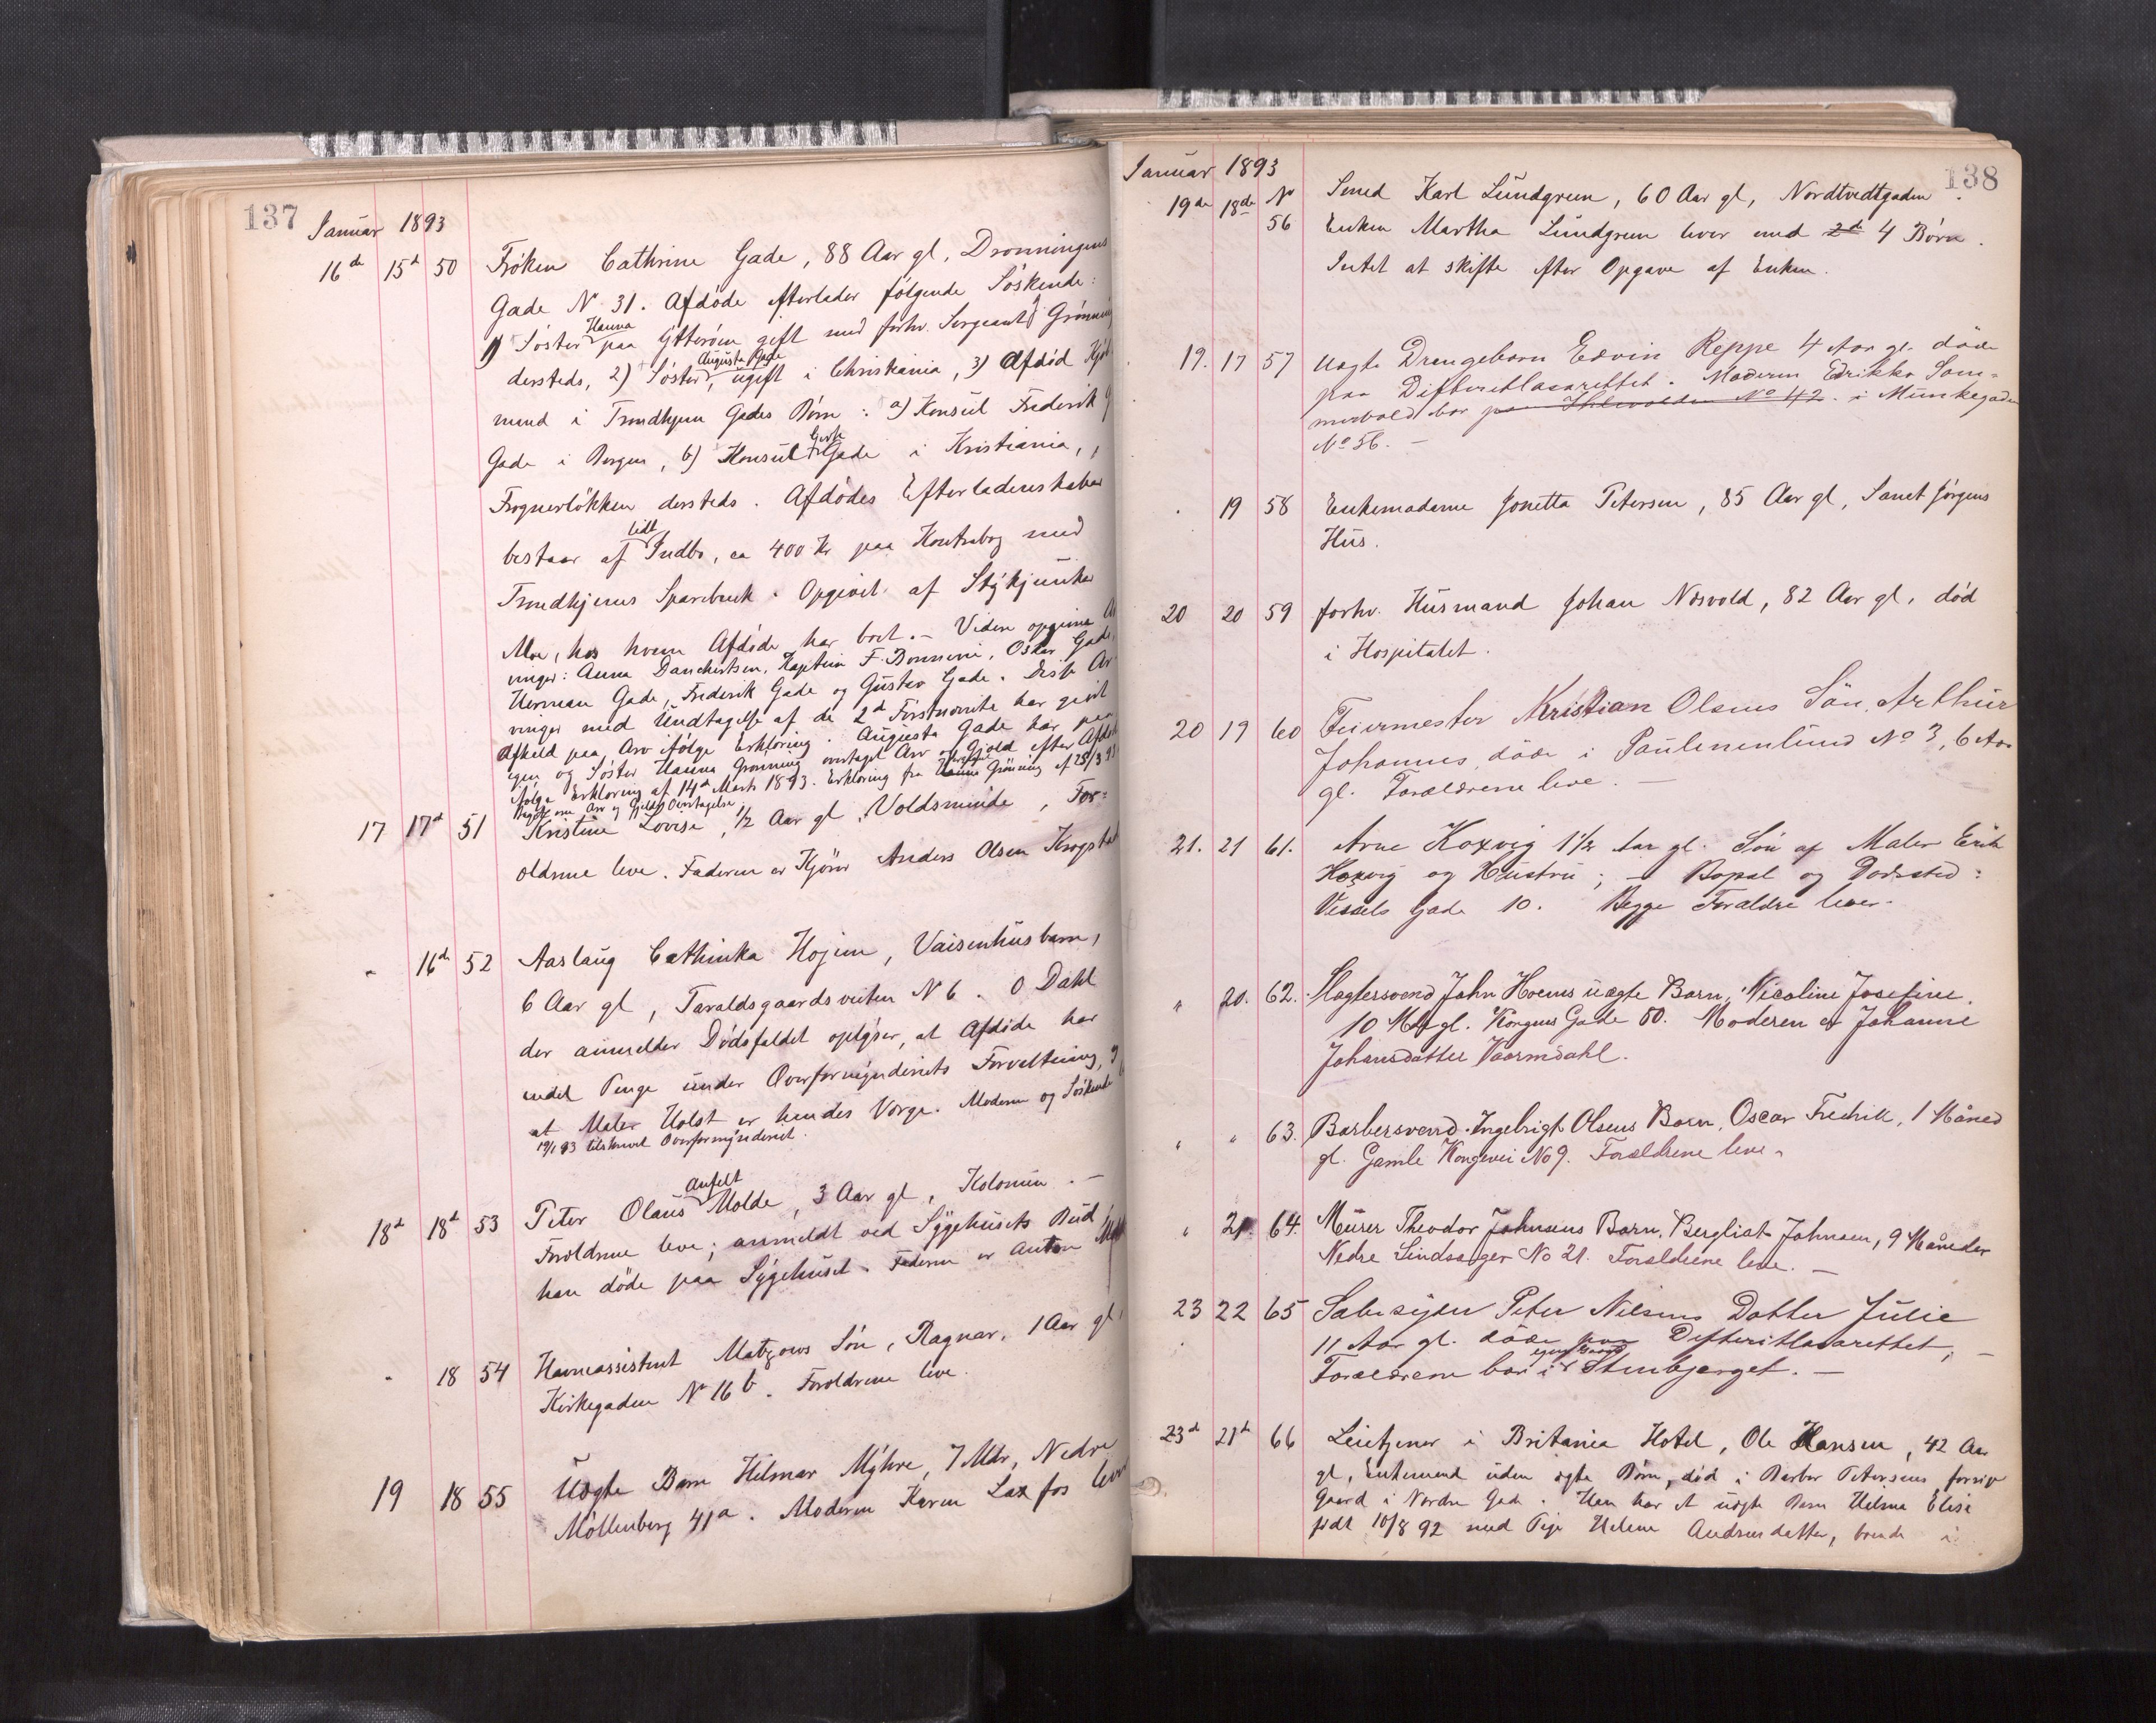 137
Januar 1893
16de 15d 50 Fröken Cathrine Gade, 88 Aar gl, Dronningens
Gade No 31. Afdöde efterlader fölgende Söskende:
1) Söster Hanna paa Ytterøen gift med forhv. Sergeant Grønning
dersteds, 2) Söster Augusta Gade, ugift i Christiania, 3) Afdöd
mand i Trondhjem Gades Börn: a) Konsul Frederik G
Gade i Bergen, b) Konsul Gade i Kristiania,
Frognerlökken dersteds. Afdödes Efterladenskaber
bestaar af lidt Indbo, ca 400 Kr paa Kontrabog med
Trondhjems Sparebank. Opgivet af Stykjunker
Moe, hos hvem Afdöde har boet. – Videre opgives Ar
vinger: Anna Danchertsen, Kaptein F. Bonnevie, Oskar Gade,
Herman Gade, Frederik Gade og Gustav Gade. Disse Ar
vinger med Undtagelse af de 2d Förstnævnte har givet
Afkald paa Arv ifölge Erklæring. Augusta Gade har paa
egne og Söster Hanna Grønning overtaget Arv og Gjæld efter Afdöde
ifölge Erklæring af 14d Marts 1893. Erklæring fra Hanna Grönning af 25/3 93
om Arv og Gjelds Overtagelse
17 17d 51 Kristine Lovise, 1/2 Aar gl, Voldsminde, For-
ældrene leve. Faderen er Kjörer Anders Olsen Krogstad
" 16de 52 Aaslaug Cathinka Hojem, Vaisenhusbarn,
6 Aar gl, Taraldsgaardsveiten No 6. O Dahl
der anmelder Dødsfaldet oplyser, at Afdöde har
endel Penge under Overformynderiets Forvaltning, og
at Maler Holst er hendes Værge. Moderen og Söskende
19/1 93 tilskrevet Overformynderiet.
18d 18d 53 Peter Olaus Anfelt Molde, 3 Aar gl, Kolonien. –
Forældrene leve; anmeldt ved Sygehusets Bud;
han döde paa Sygehuset. Faderen er Anton
" 18 54 Havneassistent Matzows Sön, Ragnar, 1 Aar gl,
Kirkegaden No 16 b. Forældrene leve.
19 18 55 Uægte Barn Hilmar Myhre, 7 Mdr, Nedre
Möllenberg 41a. Moderen Karen Laxfos lever
138
Januar 1893
19de 18de No 56 Smed Karl Lundgreen, 60 Aar gl, Nordtvedtgaden.
Enken Martha Lundgreen lever med 2de 4 Börn.
Intet at skifte efter Opgave af Enken.
19. 17 57 Uægte Drengebarn Edvin Reppe 4 Aar gl. döde
paa Difteritlasarettet. Moderen Edrikke Som-
mervold bor paa Ihlevolden No 42. i Munkegaden
No 56. –
" 19 58 Enkemadame Jonetta Petersen, 85 Aar gl, Sanct Jörgens
Hus.
20 20 59 forhv. Husmand Johan Næsvold, 82 Aar gl, död
i Hospitalet.
20 19 60 Feiermester Kristian Olsens Sön, Arthur
Johannes, döde i Paulinenlund No 3, 6 Aar
gl. Forældrene leve. –
21. 21 61. Arne Hoxvig 1 1/2 Aar gl. Sön af Maler Erik
Hoxvig og Hustru; – Bopæl og Dødssted:
Vessels Gade 10. Begge Forældre lever.
" 20. 62. Slagtersvend John Hoems uægte Barn, Nicoline Josefine.
10 Mdr gl. Kongens Gade 50. Moderen er Johanne
Johansdatter Vaarmdahl.
" " 63. Barbersvend Ingebrigt Olsens Barn, Oscar Fredrik, 1 Måned
gl. Gamle Kongevei No 9. Forældrene leve.
" 21. 64. Murer Theodor Johnsens Barn, Bergliot Johnsen, 9 Måneder
Nedre Lindsager No 21. Forældrene leve. –
23 22 65 Peter Nilsens Datter Julie
11 Aar gl. döde paa Difteritlasarettet, –
Forældrene bor i egen Gaard i Stenbjerget. –
23d 21de 66 Leietjener i Britania Hotel, Ole Hansen, 42 Aar
gl, Enkemand uden ægte Börn, död i Barber Petersens
Gaard i Nordre Gade. Han har et uægte Barn Helma Elise
födt 10/8 92 med Pige Helene Andreasdatter, boende i